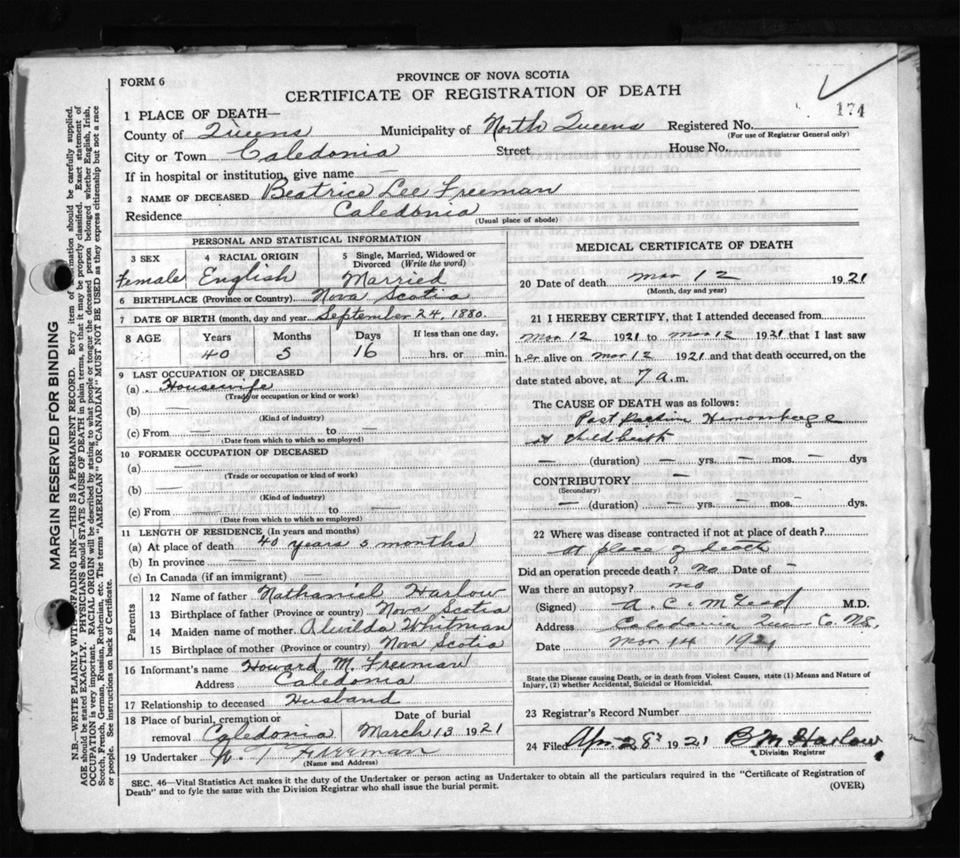 FORM 6
PROVINCE OF NOVA SCOTIA
CERTIFICATE OF REGISTRATION OF DEATH
174
1 PLACE OF DEATH—
County of Queens Municipality of North Queens Registered No.
(For use of Registrar General only)
City or Town Caledonia Street House No.
If in hospital or institution, give name —
2 NAME OF DECEASED Beatrice Lee Freeman
Residence Caledonia
(Usual place of abode)
PERSONAL AND STATISTICAL INFORMATION
3 SEX 4 RACIAL ORIGIN 5 Single, Married, Widowed or Divorced (Write the word)
Female English Married
6 BIRTHPLACE (Province or Country) Nova Scotia
7 DATE OF BIRTH (month, day and year) September 24, 1880.
8 AGE Years Months Days If less than one day,
40 5 16 hrs. or min.
9 LAST OCCUPATION OF DECEASED
(a) Housewife
(Trade or occupation or kind or work)
(b) —
(Kind of industry)
(c) From — to —
(Date from which to which so employed)
10 FORMER OCCUPATION OF DECEASED
(a) —
(Trade or occupation or kind of work)
(b) —
(Kind of industry)
(c) From — to —
(Date from which to which so employed)
11 LENGTH OF RESIDENCE (In years and months)
(a) At place of death 40 years 5 months
(b) In province —
(c) In Canada (if an immigrant) —
Parents
12 Name of father Nathaniel Harlow
13 Birthplace of father (Province or country) Nova Scotia
14 Maiden name of mother Alwilda Whitman
15 Birthplace of mother (Province or country) Nova Scotia
16 Informant's name Howard M. Freeman
Address Caledonia
17 Relationship to deceased Husband
18 Place of burial, cremation or removal Caledonia Date of burial March 13 1921
19 Undertaker W. T. Freeman
(Name and Address)
MEDICAL CERTIFICATE OF DEATH
20 Date of death Mar 12 1921
(Month, day and year)
21 I HEREBY CERTIFY, that I attended deceased from
Mar 12 1921 to Mar 12 1921 that I last saw
her alive on Mar 12 1921 and that death occurred, on the
date stated above, at 7 a.m.
The CAUSE OF DEATH was as follows:
Post Partum Hemorrhage
at childbirth
— (duration) — yrs. — mos. — dys
CONTRIBUTORY —
(Secondary)
— (duration) — yrs. — mos. — dys.
22 Where was disease contracted if not at place of death?
at place of death
Did an operation precede death? No Date of —
Was there an autopsy? no
(Signed) A. C. M M.D.
Address Caledonia Queens Co. N.S.
Date Mar 14 1921
State the Disease causing Death, or in death from Violent Causes, state (1) Means and Nature of
Injury, (2) whether Accidental, Suicidal or Homicidal.
23 Registrar's Record Number
24 Filed Apr 28th 1921 B M Harlow
Division Registrar
SEC. 46—Vital Statistics Act makes it the duty of the Undertaker or person acting as Undertaker to obtain all the particulars required in the "Certificate of Registration of
Death" and to fyle the same with the Division Registrar who shall issue the burial permit.
(OVER)
MARGIN RESERVED FOR BINDING
N.B.—WRITE PLAINLY WITH UNFADING INK—THIS IS A PERMANENT RECORD. Every item of information should be carefully supplied.
AGE should be stated EXACTLY. PHYSICIANS should STATE CAUSE OF DEATH in plain terms, so that it may be properly classified. Exact statement of
OCCUPATION is very important. RACIAL ORIGIN will be described by stating to what people or tongue the deceased person belonged whether English, Irish,
Scotch, French, German, Russian, Ruthenian, etc. The terms "AMERICAN" OR "CANADIAN" MUST NOT BE USED as they express citizenship but not a race
or people. See instructions on back of Certificate.